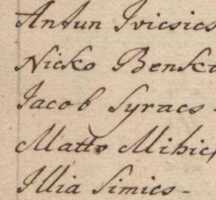 Antun Ivicsics
Nicko Benski
Jacob Syracs -
Matto Mihics
Illia Simics -